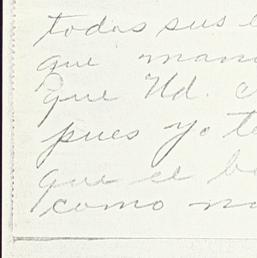 todas sus
que
que Ud.
pues yo te
que el
como